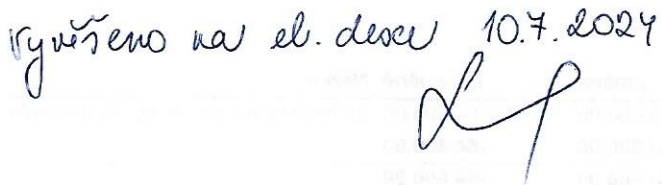 Vyvěšeno na el. desce 10.7.2024